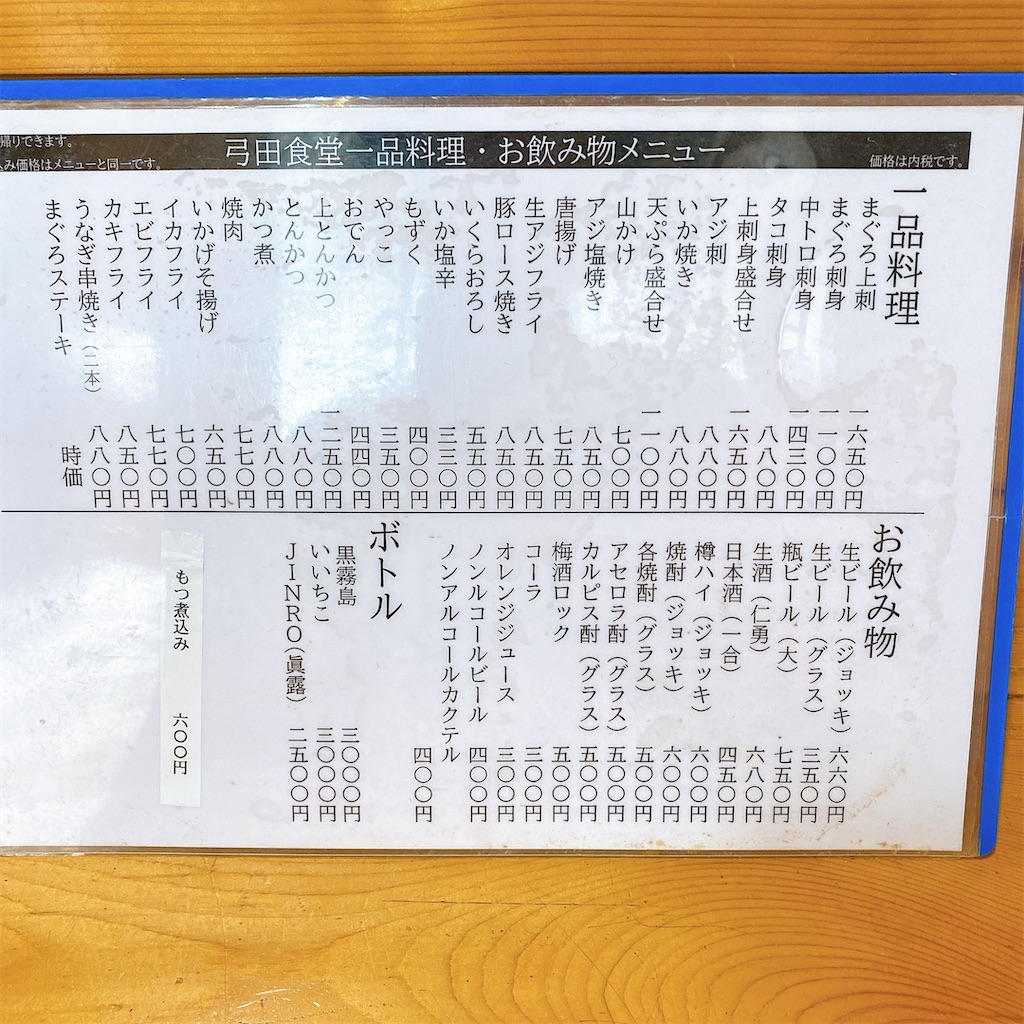 帰りできます。
込み価格はメニューと同一です。
弓田食堂一品料理・お飲み物メニュー
価格は内税です。
一品料理
まぐろ上刺 一六五〇円
まぐろ刺身 一一〇〇円
中トロ刺身 一四三〇円
タコ刺身 八八〇円
上刺身盛合せ 一六五〇円
アジ刺 八八〇円
いか焼き 八八〇円
天ぷら盛合せ 一一〇〇円
山かけ 七〇〇円
アジ塩焼き 八五〇円
唐揚げ 七五〇円
生アジフライ 八五〇円
豚ロース焼き 八五〇円
いくらおろし 五五〇円
いか塩辛 三三〇円
もずく 四〇〇円
やっこ 三五〇円
おでん 四四〇円
上とんかつ 一二五〇円
とんかつ 八八〇円
かつ煮 八八〇円
焼肉 七七〇円
いかげそ揚げ 六五〇円
イカフライ 七〇〇円
エビフライ 七七〇円
カキフライ 八五〇円
うなぎ串焼き（二本） 八八〇円
まぐろステーキ 時価
お飲み物
生ビール（ジョッキ） 六六〇円
生ビール（グラス） 三五〇円
瓶ビール（大） 七五〇円
生酒（仁勇） 六八〇円
日本酒（一合） 四五〇円
樽ハイ（ジョッキ） 六〇〇円
焼酎（ジョッキ） 六〇〇円
各焼酎（グラス） 五〇〇円
アセロラ酎（グラス） 五〇〇円
カルピス酎（グラス） 五〇〇円
梅酒ロック 五〇〇円
コーラ 三〇〇円
オレンジジュース 三〇〇円
ノンルコールビール 四〇〇円
ノンアルコールカクテル 四〇〇円
ボトル
黒霧島 三〇〇〇円
いいちこ 三〇〇〇円
ＪＩＮＲＯ（眞露） 二五〇〇円
もつ煮込み 六〇〇円